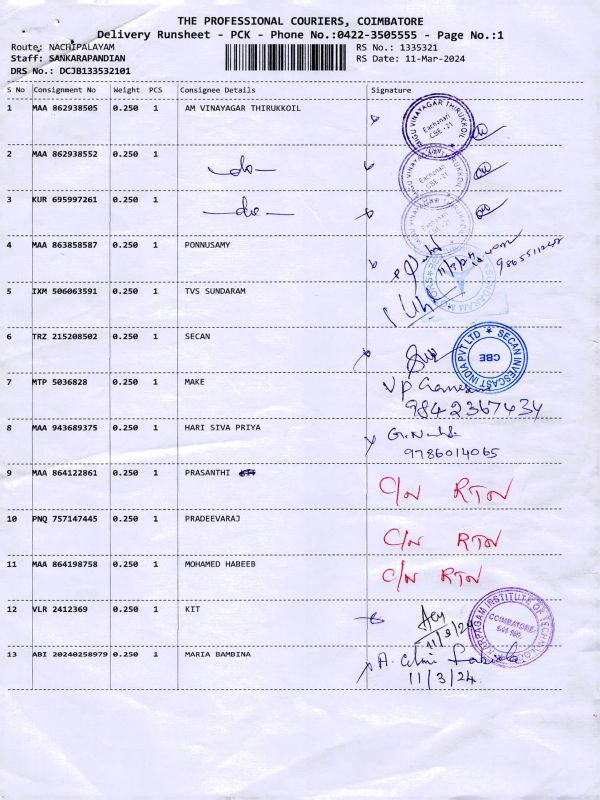 THE PROFESSIONAL COURIERS, COIMBATORE
Delivery Runsheet - PCK - Phone No.:0422-3505555 - Page No.:1
Route: NACHIPALAYAM RS No.: 1335321
Staff: SANKARAPANDIAN RS Date: 11-Mar-2024
DRS No.: DCJB133532101
S No Consignment No Weight PCS Consignee Details Signature
1 MAA 862938505 0.250 1 AM VINAYAGAR THIRUKKOIL
Eachanari
CBE - 21
2 MAA 862938552 0.250 1
—do—
Eachanari
CBE - 21
3 KUR 695997261 0.250 1
—do—
4 MAA 863858587 0.250 1 PONNUSAMY
5 IXM 506063591 0.250 1 TVS SUNDARAM
6 TRZ 215208502 0.250 1 SECAN
SECAN INVESCAST INDIA PVT LTD
CBE
7 MTP 5036828 0.250 1 MAKE
9842367434
8 MAA 943689375 0.250 1 HARI SIVA PRIYA
9786014065
9 MAA 864122861 0.250 1 PRASANTHI
C/N RTN
10 PNQ 757147445 0.250 1 PRADEEVARAJ
C/N RTN
11 MAA 864198758 0.250 1 MOHAMED HABEEB
C/N RTN
12 VLR 2412369 0.250 1 KIT
11/3/24
KARPAGAM INSTITUTE OF TECHNOLOGY
COIMBATORE
13 ABI 20240258979 0.250 1 MARIA BAMBINA
11/3/24